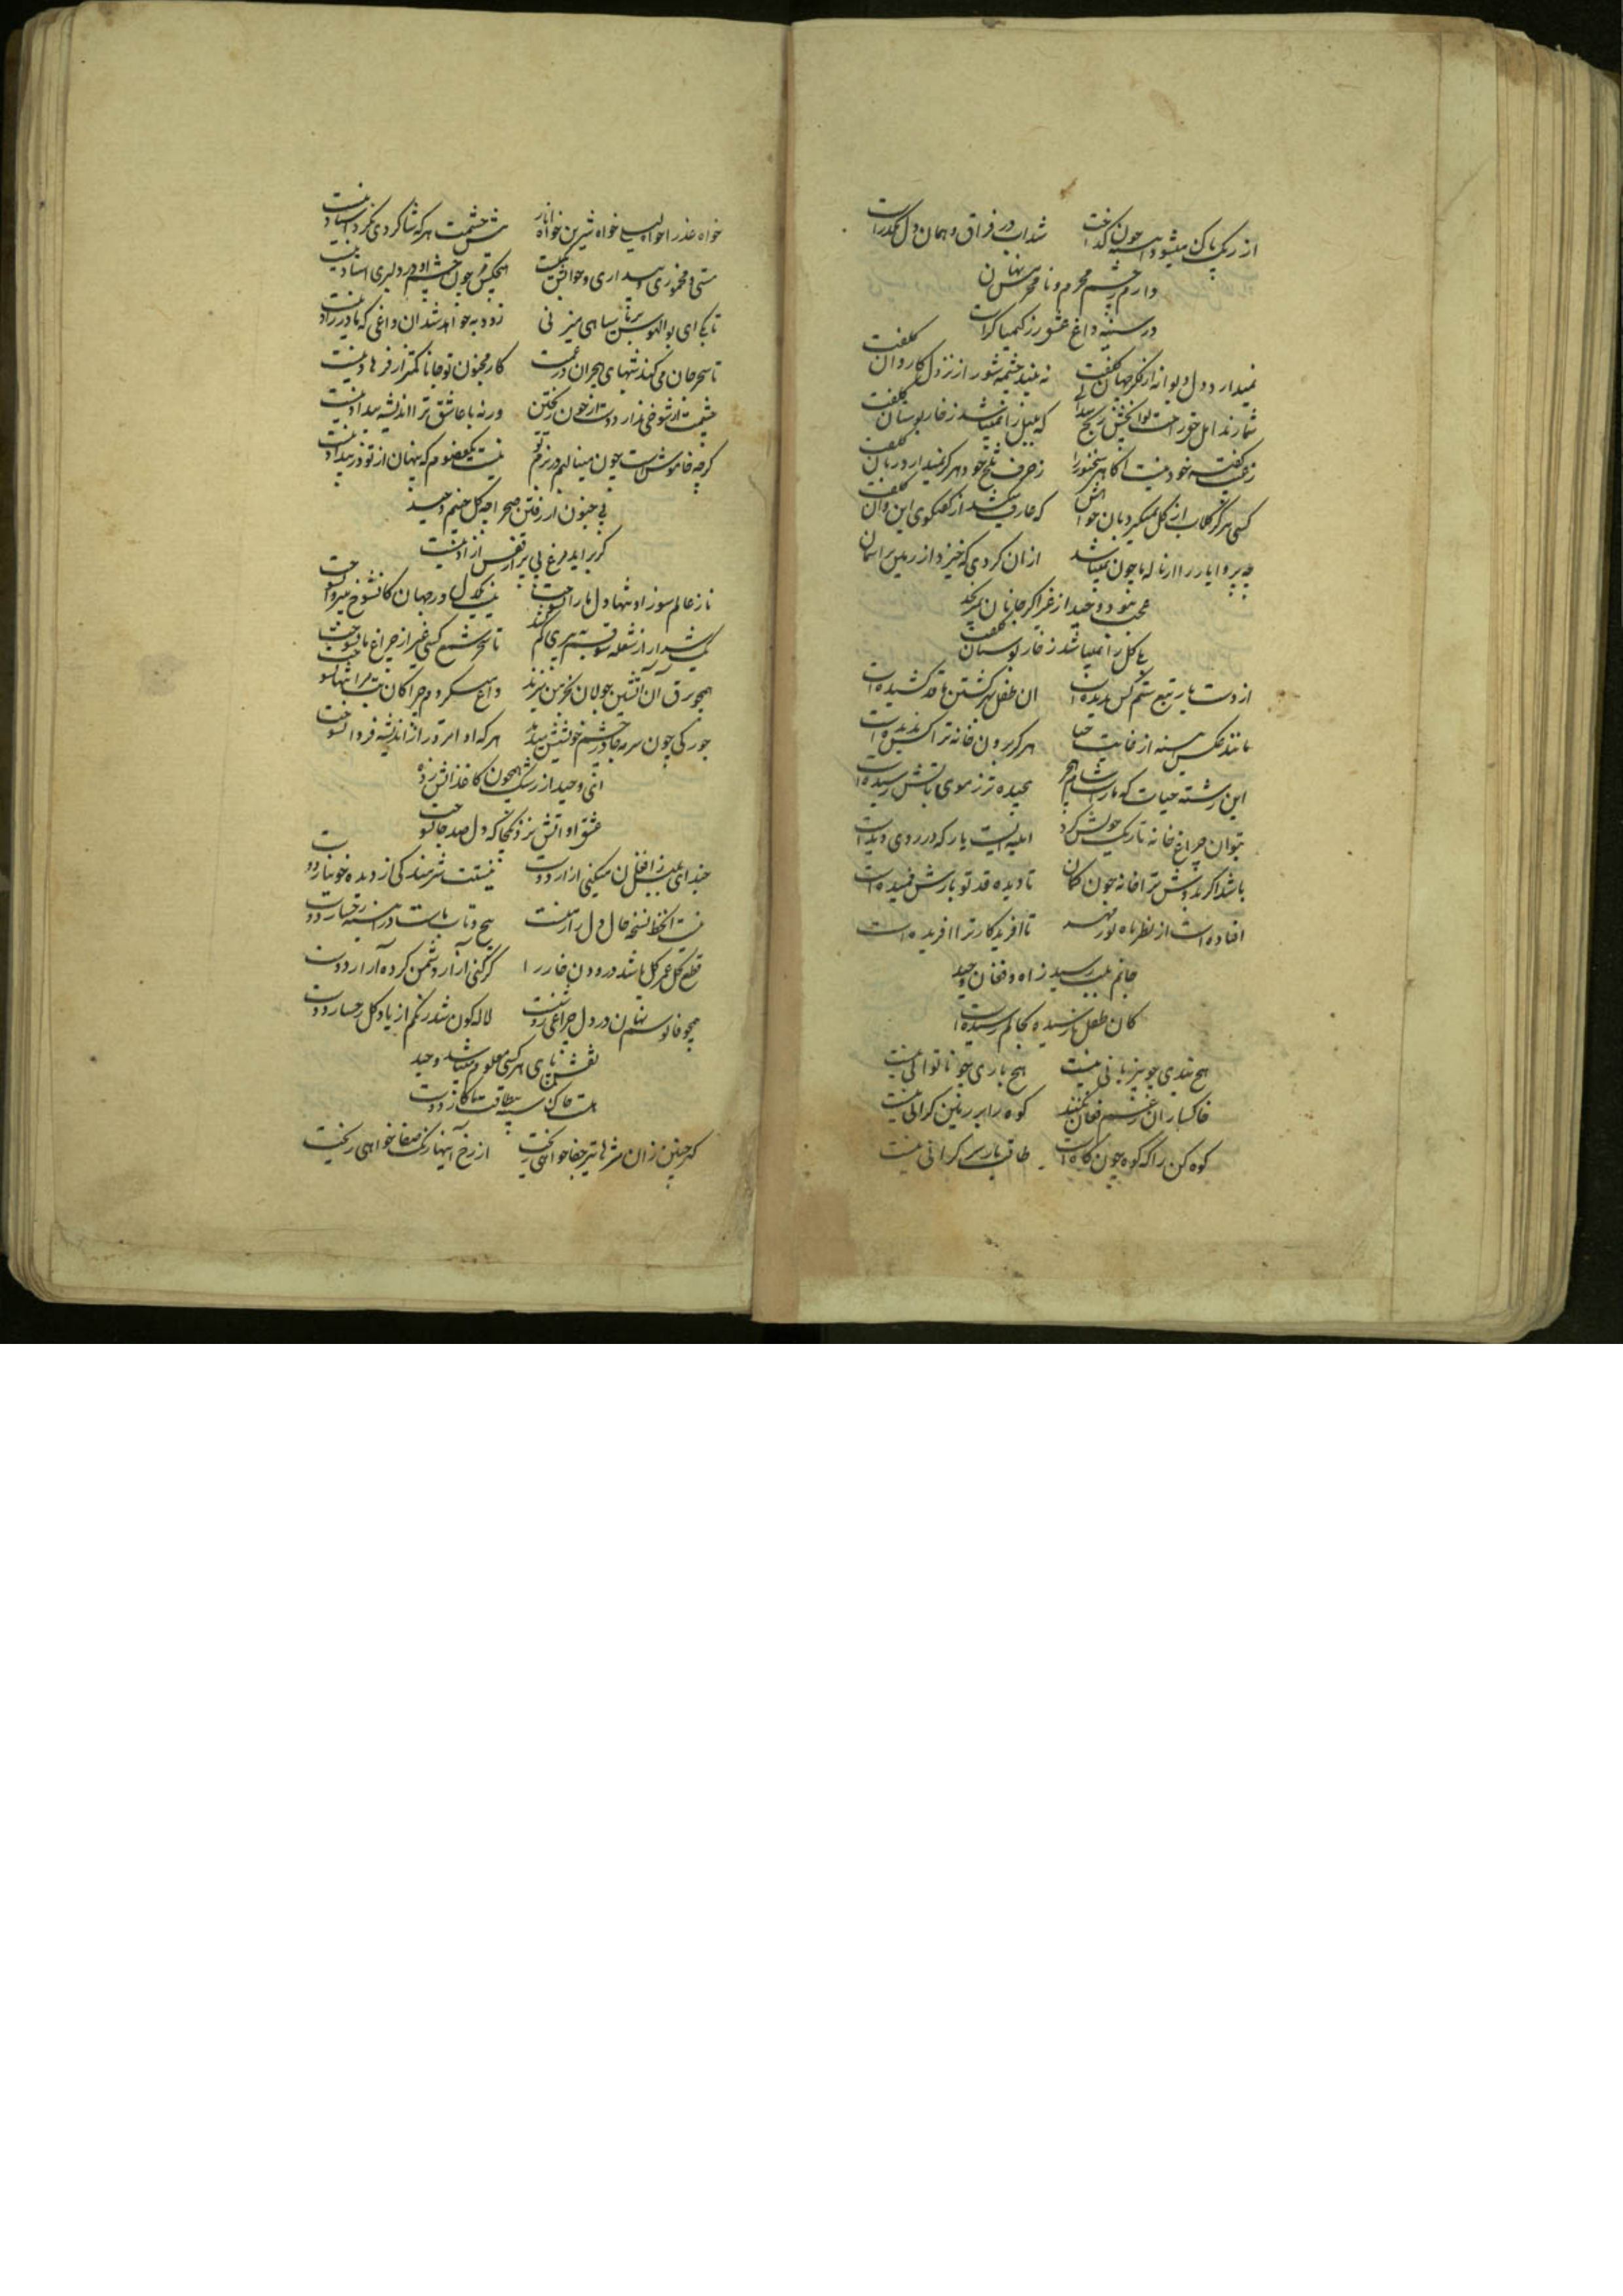 از رنگ پاک میشود آیینه چون گداخت شد آب در فراق و همان دل مکدر است
دارم ز چشم محرم و نامحرمش نهان
در سینه داغ عشق ز کیمیاگر است
نمیدارد دل دیوانه از فکر جهان کلفت نه بیند چشمه شور از نزول کاروان کلفت
شمارند اهل حق راحت رنج که بلبل را نمیباشد ز خار بوستان کلفت
ز عیب گفته خود نیست آگاهی سخنور را ز حرف تلخ خود هرگز نمیدارد زبان کلفت
کسی هرگز گلاب از گل نمیگیرد بان خواهش که عارف میکشد از گفتگوی این و آن کلفت
چه پروا یار را از ناله ما چون نمیباشد از آن گردی که خیزد از زمین بر آسمان
محبت نبود وحید از غیر اگر جانان
گل را نمیباشد ز خار بوستان کلفت
از دست یار تیغ ستم کس ندیده است آن طفل بهر کشتن ما قد کشیده است
مانند عکس آینه از غایت حیا هرگز برون خانه ترا کس ندیده است
این رشته حیات که ما راست شام هجر پیچیده تر ز موی بآتش رسیده است
نتوان چراغ خانه تاریک خویش کرد آیینه ایست یار که در روی دیده است
باشد اگر بدوش ترا خانه چون کمان تا دیده قد تو بارش خمیده است
افتاده است از نظر ماه نور مهر تا آفریدگار ترا آفریده است
جانم بلب رسید ز آه و فغان وحید
کان طفل نارسیده بجانم رسیده است
هیچ تندی چو بیزبانی نیست هیچ باری چو ناتوانی نیست
خاکساران ز غم فغان نکنند کوه را بر زمین گرانی نیست
کوه کن را که کوه چون کاه است طاقت بار سر گرانی نیست
خواه عذرا خواه لیلی خواه شیرین خواه ناز پیش چشمت هر که شاگردی نکرد استاد نیست
مستی و مخموری و بیداری و خوابش یکیست هیچکس چون چشم او در دلبری استاد نیست
تا بکی ای بوالهوس بر تن سیاهی میزنی زود به خواهد شد آن داغی که مادرزاد نیست
تا سحر جان می کند شبهای هجران در غمت کار مجنون تو جانا کمتر از فرهاد نیست
چشمت از شوخی ندارد دست از خون ریختن ورنه با عاشق ترا اندیشه بیداد نیست
گرچه خاموش است چون مینا لبم در بزم تو نیست یکعضوم که پنهان از تو در فریاد نیست
بی جنون از رفتن صحرا چه گل چینم وحید
گر برآید مرغ بی پر از قفس آزاد نیست
ناز عالم سوز او تنها دل ما را نسوخت نیست یکدل در جهان کان شوخ بی پروا نسوخت
تا سحر شمع کسی غیر از چراغ ما نسوخت
همچو برق آن آتشین جولان بخرمن میزند داغ بیکس کردم چرا کان بت مرا تنها نسوخت
هر که او امروز از اندیشه فردا نسوخت
آنی وحید از رشک همچون کاغذ آتش زده
عشق او آتش نزد یکجا که دل صد جا نسوخت
چند ای بلبل ز افغان میکنی آزار دوست نیستت شرمندگی از دیده خونبار دوست
نیست آن خط نسخه حال دل زار منست پیچ و تاب ماست در آیینه رخسار دوست
قطع گل عمر گل باشد درودن خار را گر کنی آزار دشمن کرده آزار دوست
همچو فانوسم نهان در دل چراغی روشنست لاله گون شد رنگم از یاد گل رخسار دوست
نقش پای هر کسی معلوم میباشد وحید
هست چاک سینه
گر چنین زان مژه ها تیر جفا خواهی ریخت از رخ آینها رنگ صفا خواهی ریخت